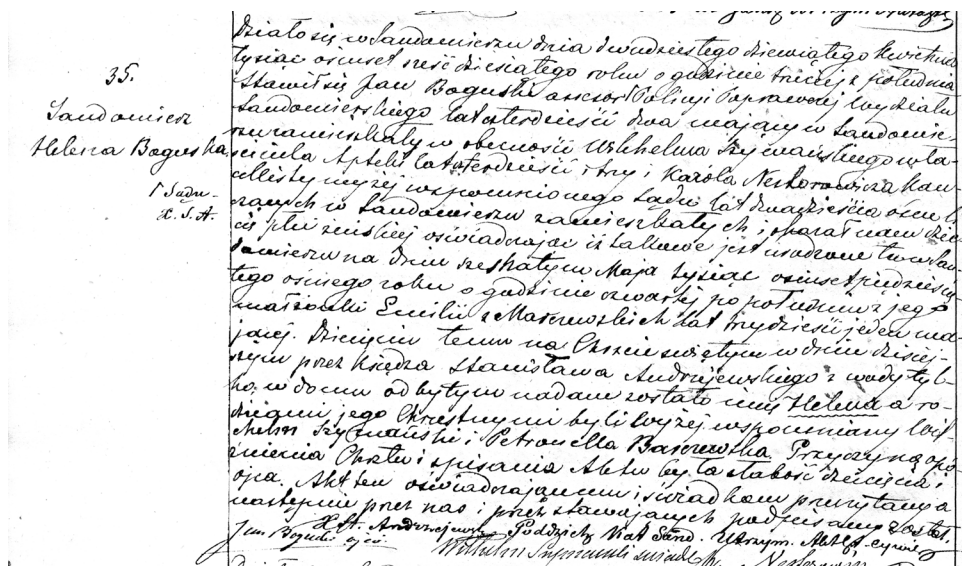 35.
Sandomierz
Helena Boguska
Działo się w Sandomierzu dnia dwudziestego dziewiątego Kwietnia
tysiąc osiemset sześćdziesiątego roku o godzinie trzeciej z południa
Stawił się Jan Boguski assesor Policyi Poprawczej Wydziału
Sandomierskiego lat czterdzieści dwa mający w Sandomie-
rzu zamieszkały w obecności Wilhelma Szymańskiego wła-
ściciela Apteki lat czterdzieści i trzy i Karola Nestorowicza Kan-
cellisty wyżej wspomnionego Sądu lat dwadzieścia ośm li-
czących w Sandomierzu zamieszkałych i okazał nam dzie-
cię płci żeńskiej oświadczając iż takowe jest urodzone tu w San-
domierzu na dniu szóstym Maja tysiąc osiemset pięćdziesią-
tego ósmego roku o godzinie czwartej po południu z jego
małżonki Emilii z Maszewskich lat trzydzieści jeden ma-
jącej. Dziecięciu temu na Chrzcie świętym w dniu dzisiej-
szym przez Księdza Stanisława Andrzejewskiego z wody tyl-
ko w domu odbytym nadane zostało imię Helena a ro-
dzicami jego Chrzestnymi byli wyżej wspomniany Wil-
helm Szymański i Petronella Baszewska. Przyczyną opó-
źnienia Chrztu i spisania Aktu była słabość dziecięcia i
ojca. Akt ten oświadczającemu i świadkom przeczytany a
następnie przez nas i przez stawających podpisany został.
X. St. Andrzejewski Poddzich. Kat. Sand. Utrzym. Akta Cywil.
Jan Boguski ojciec
Wilhelm Szymański świadek